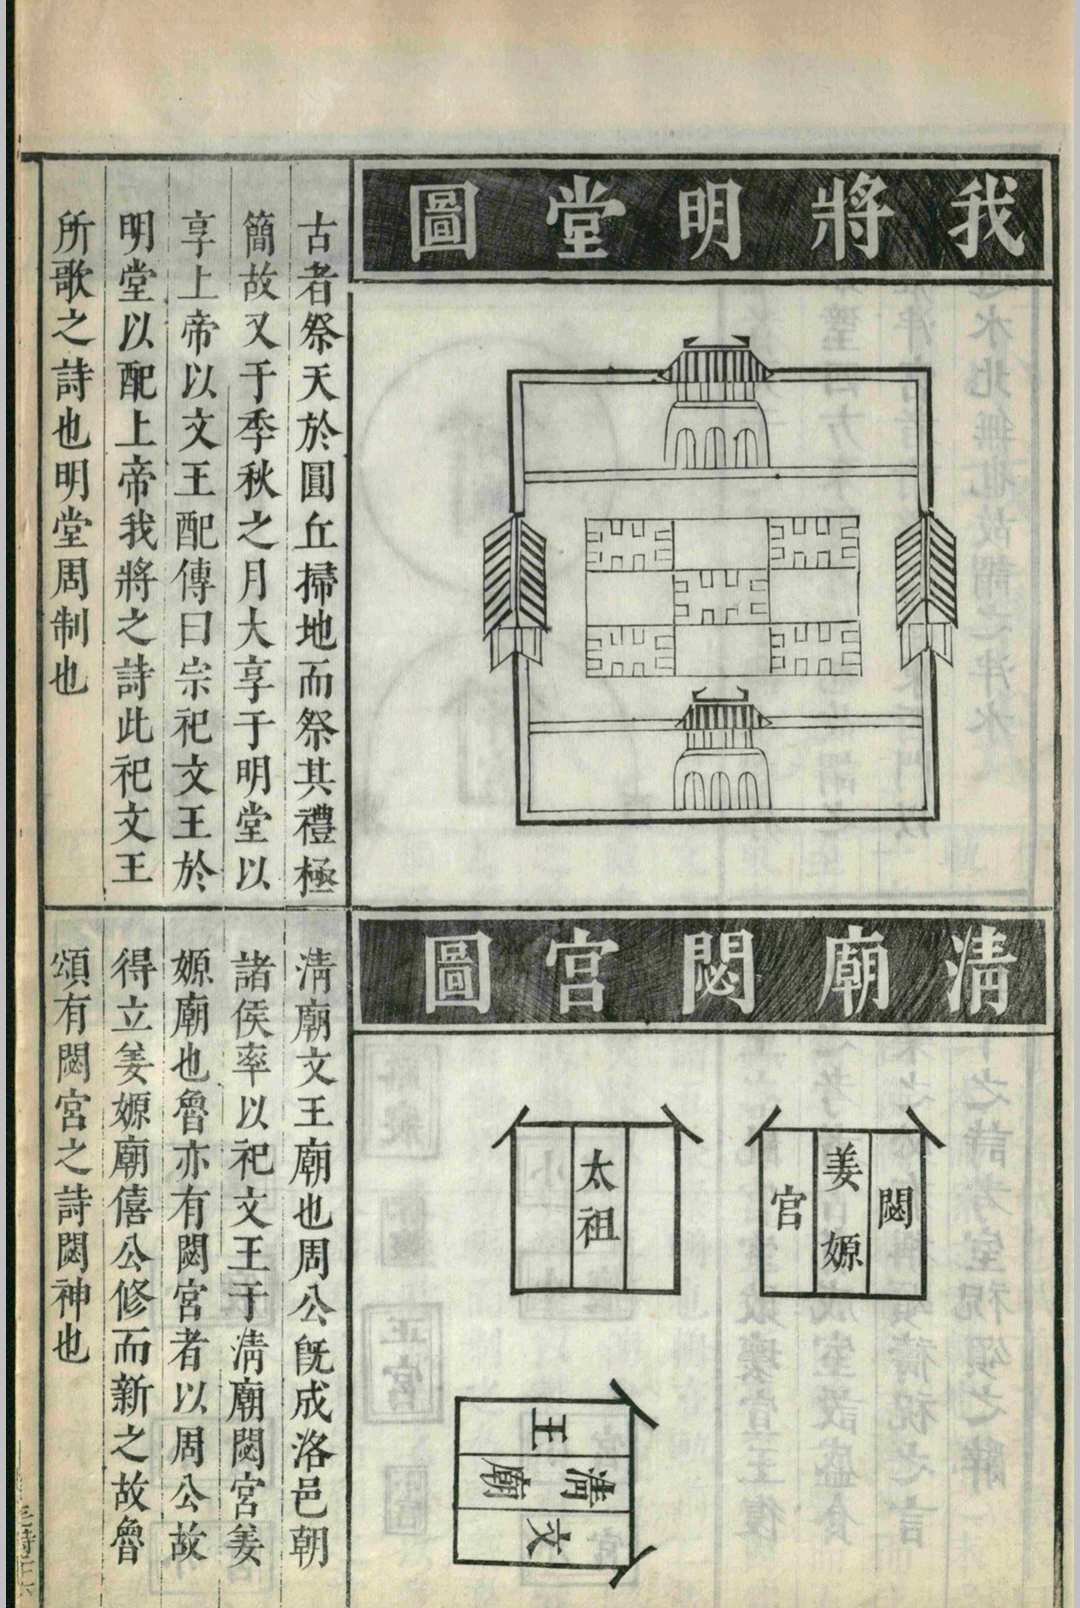 我將明堂圖
古者祭天於圓丘掃地而祭其禮極
簡故又于季秋之月大享于明堂以
享上帝以文王配傳曰宗祀文王於
明堂以配上帝我將之詩此祀文王
所歌之詩也明堂周制也
清廟閟宮圖
閟
姜嫄
宮
太祖
文
清廟
王
清廟文王廟也周公旣成洛邑朝
諸侯率以祀文王于清廟閟宮姜
嫄廟也魯亦有閟宮者以周公故
得立姜嫄廟僖公修而新之故魯
頌有閟宮之詩閟神也